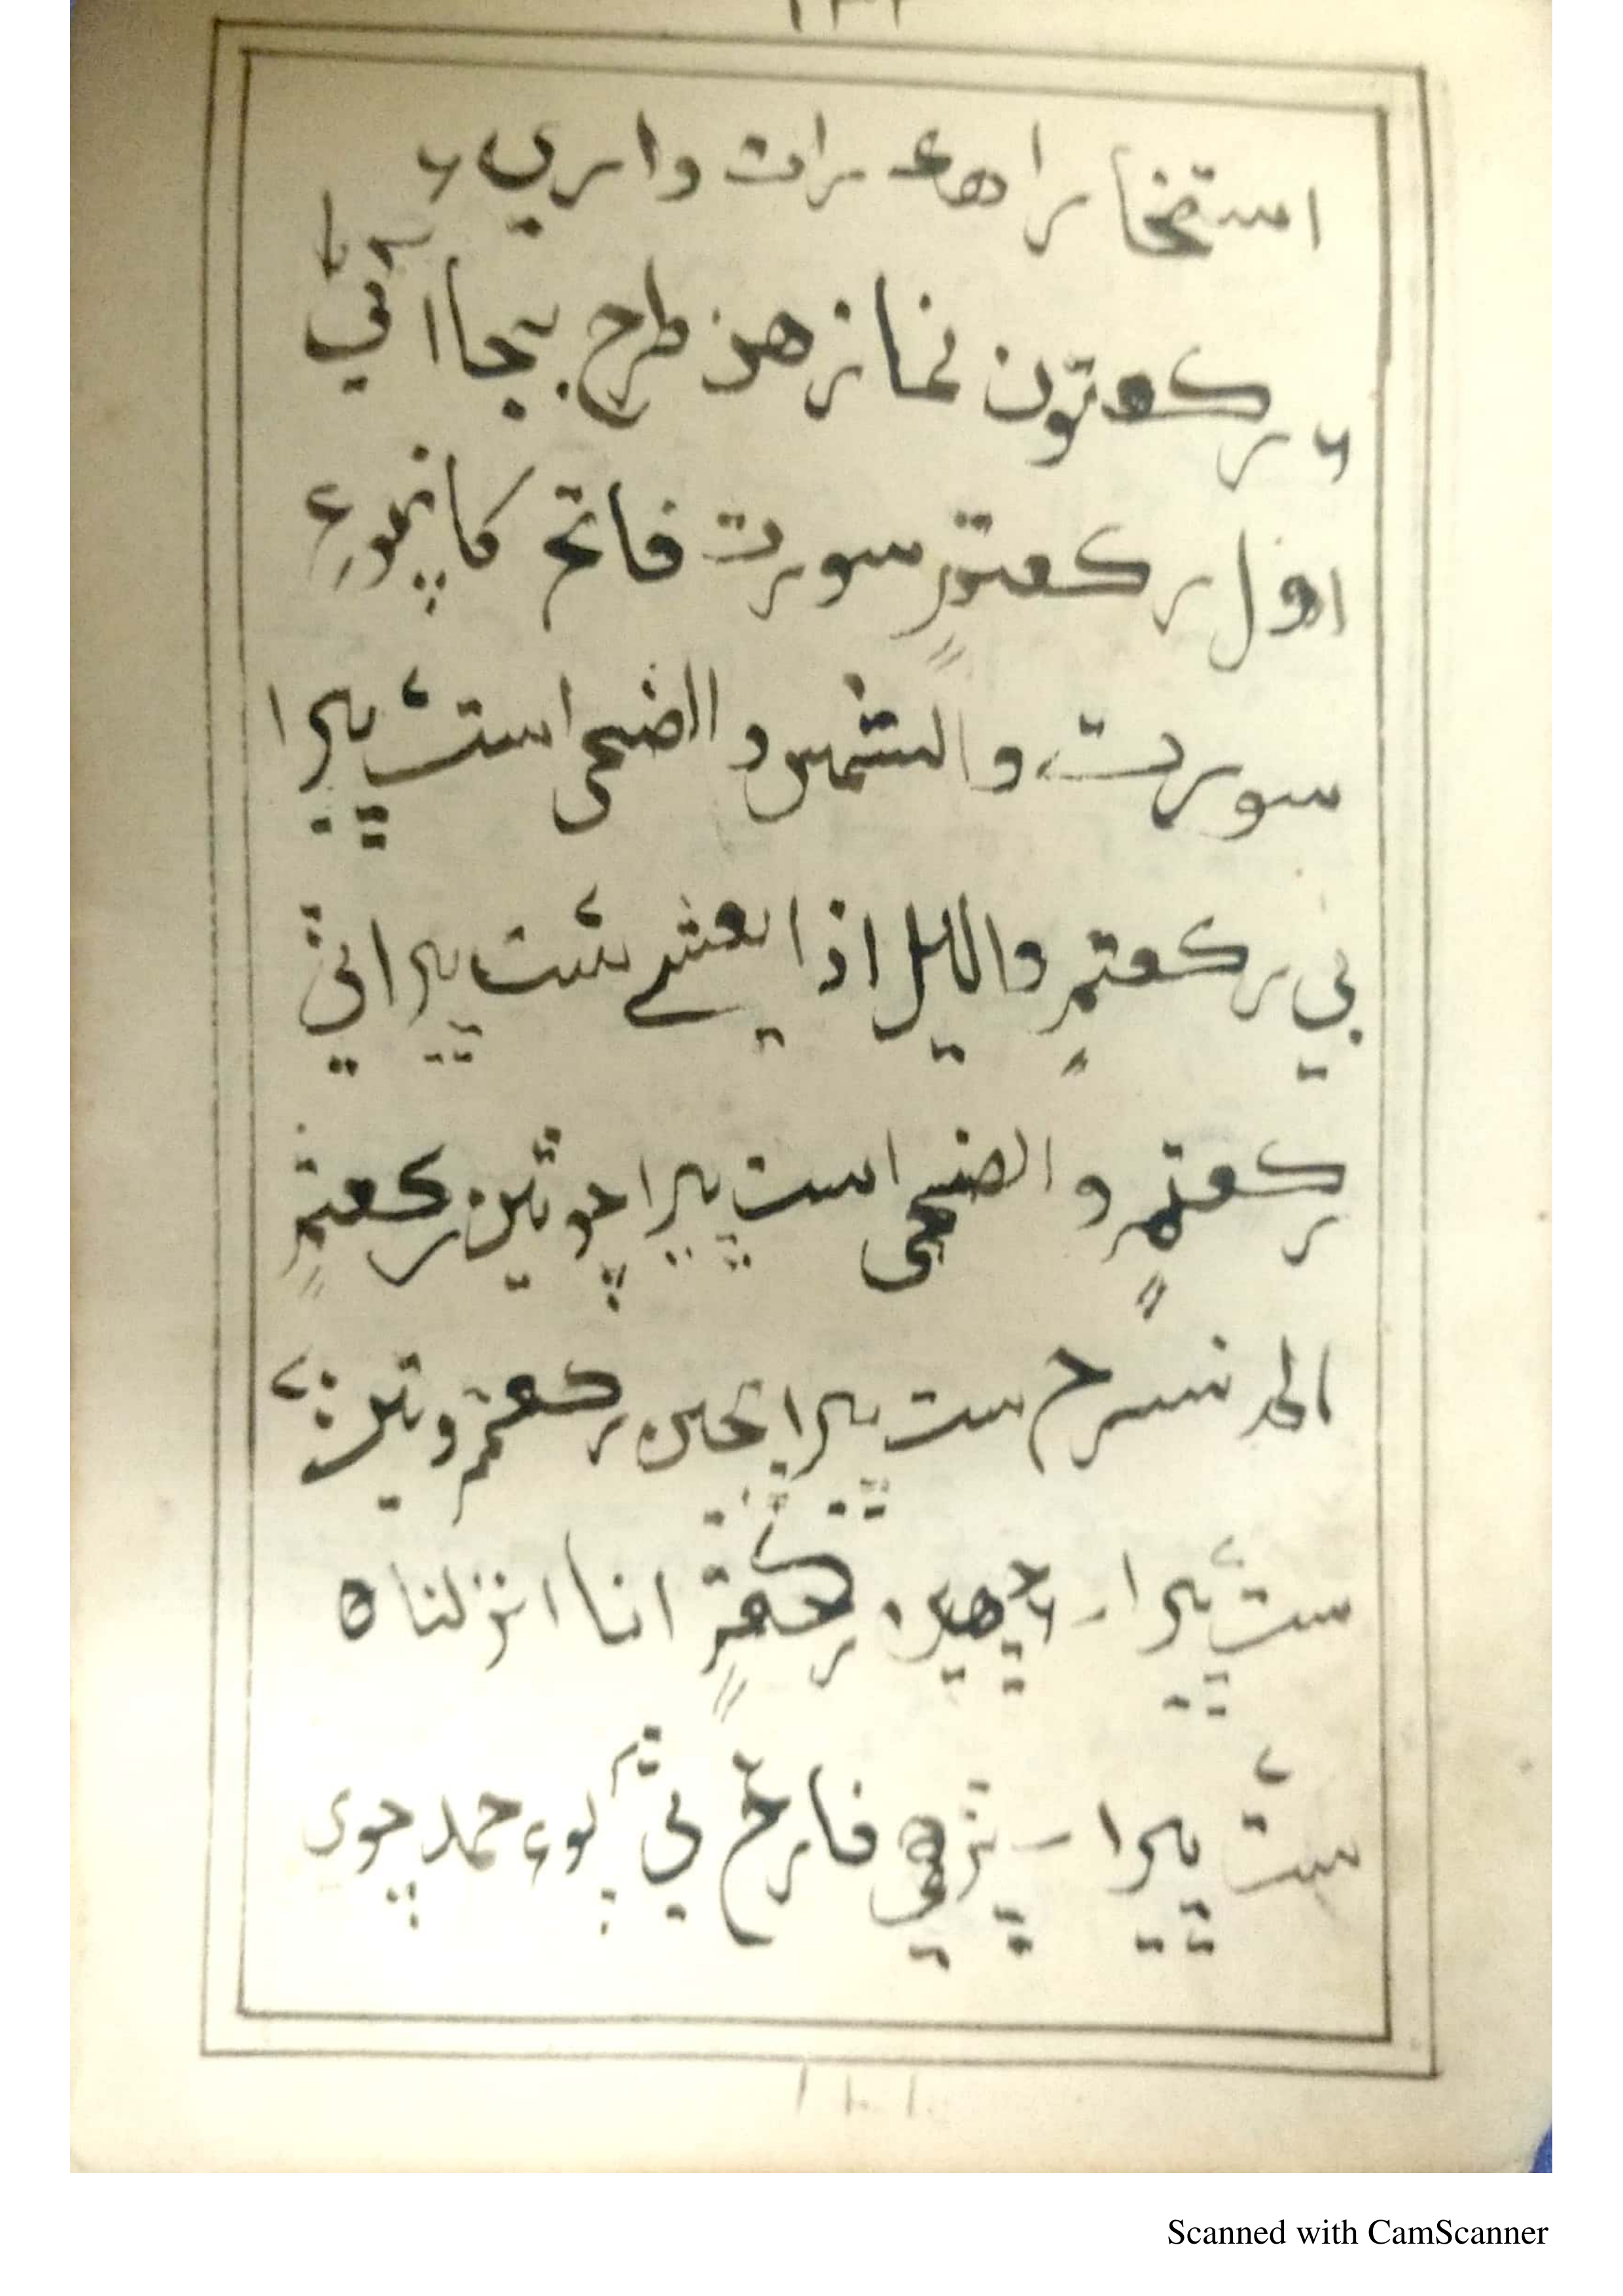 استخارا هه رات واري ۶
۶ رڪعتون نماز هن طرح بجا آڻي
اول رڪعتم سورت فاتح کانپوءِ
سورت والشمس والضحى ست ڀيرا
ٻي رڪعتم والليل اذا يغشى ست ڀيرا ٽي
رڪعتم والضحى ست ڀيرا چوٿين رڪعتم
الم نشرح ست ڀيرا پنجين رڪعتم وتين
ست ڀيرا - ڇهين رڪعتم انا انزلناه
ست ڀيرا - پڙهي فارغ ٿي پوءِ حمد چوي
Scanned with CamScanner